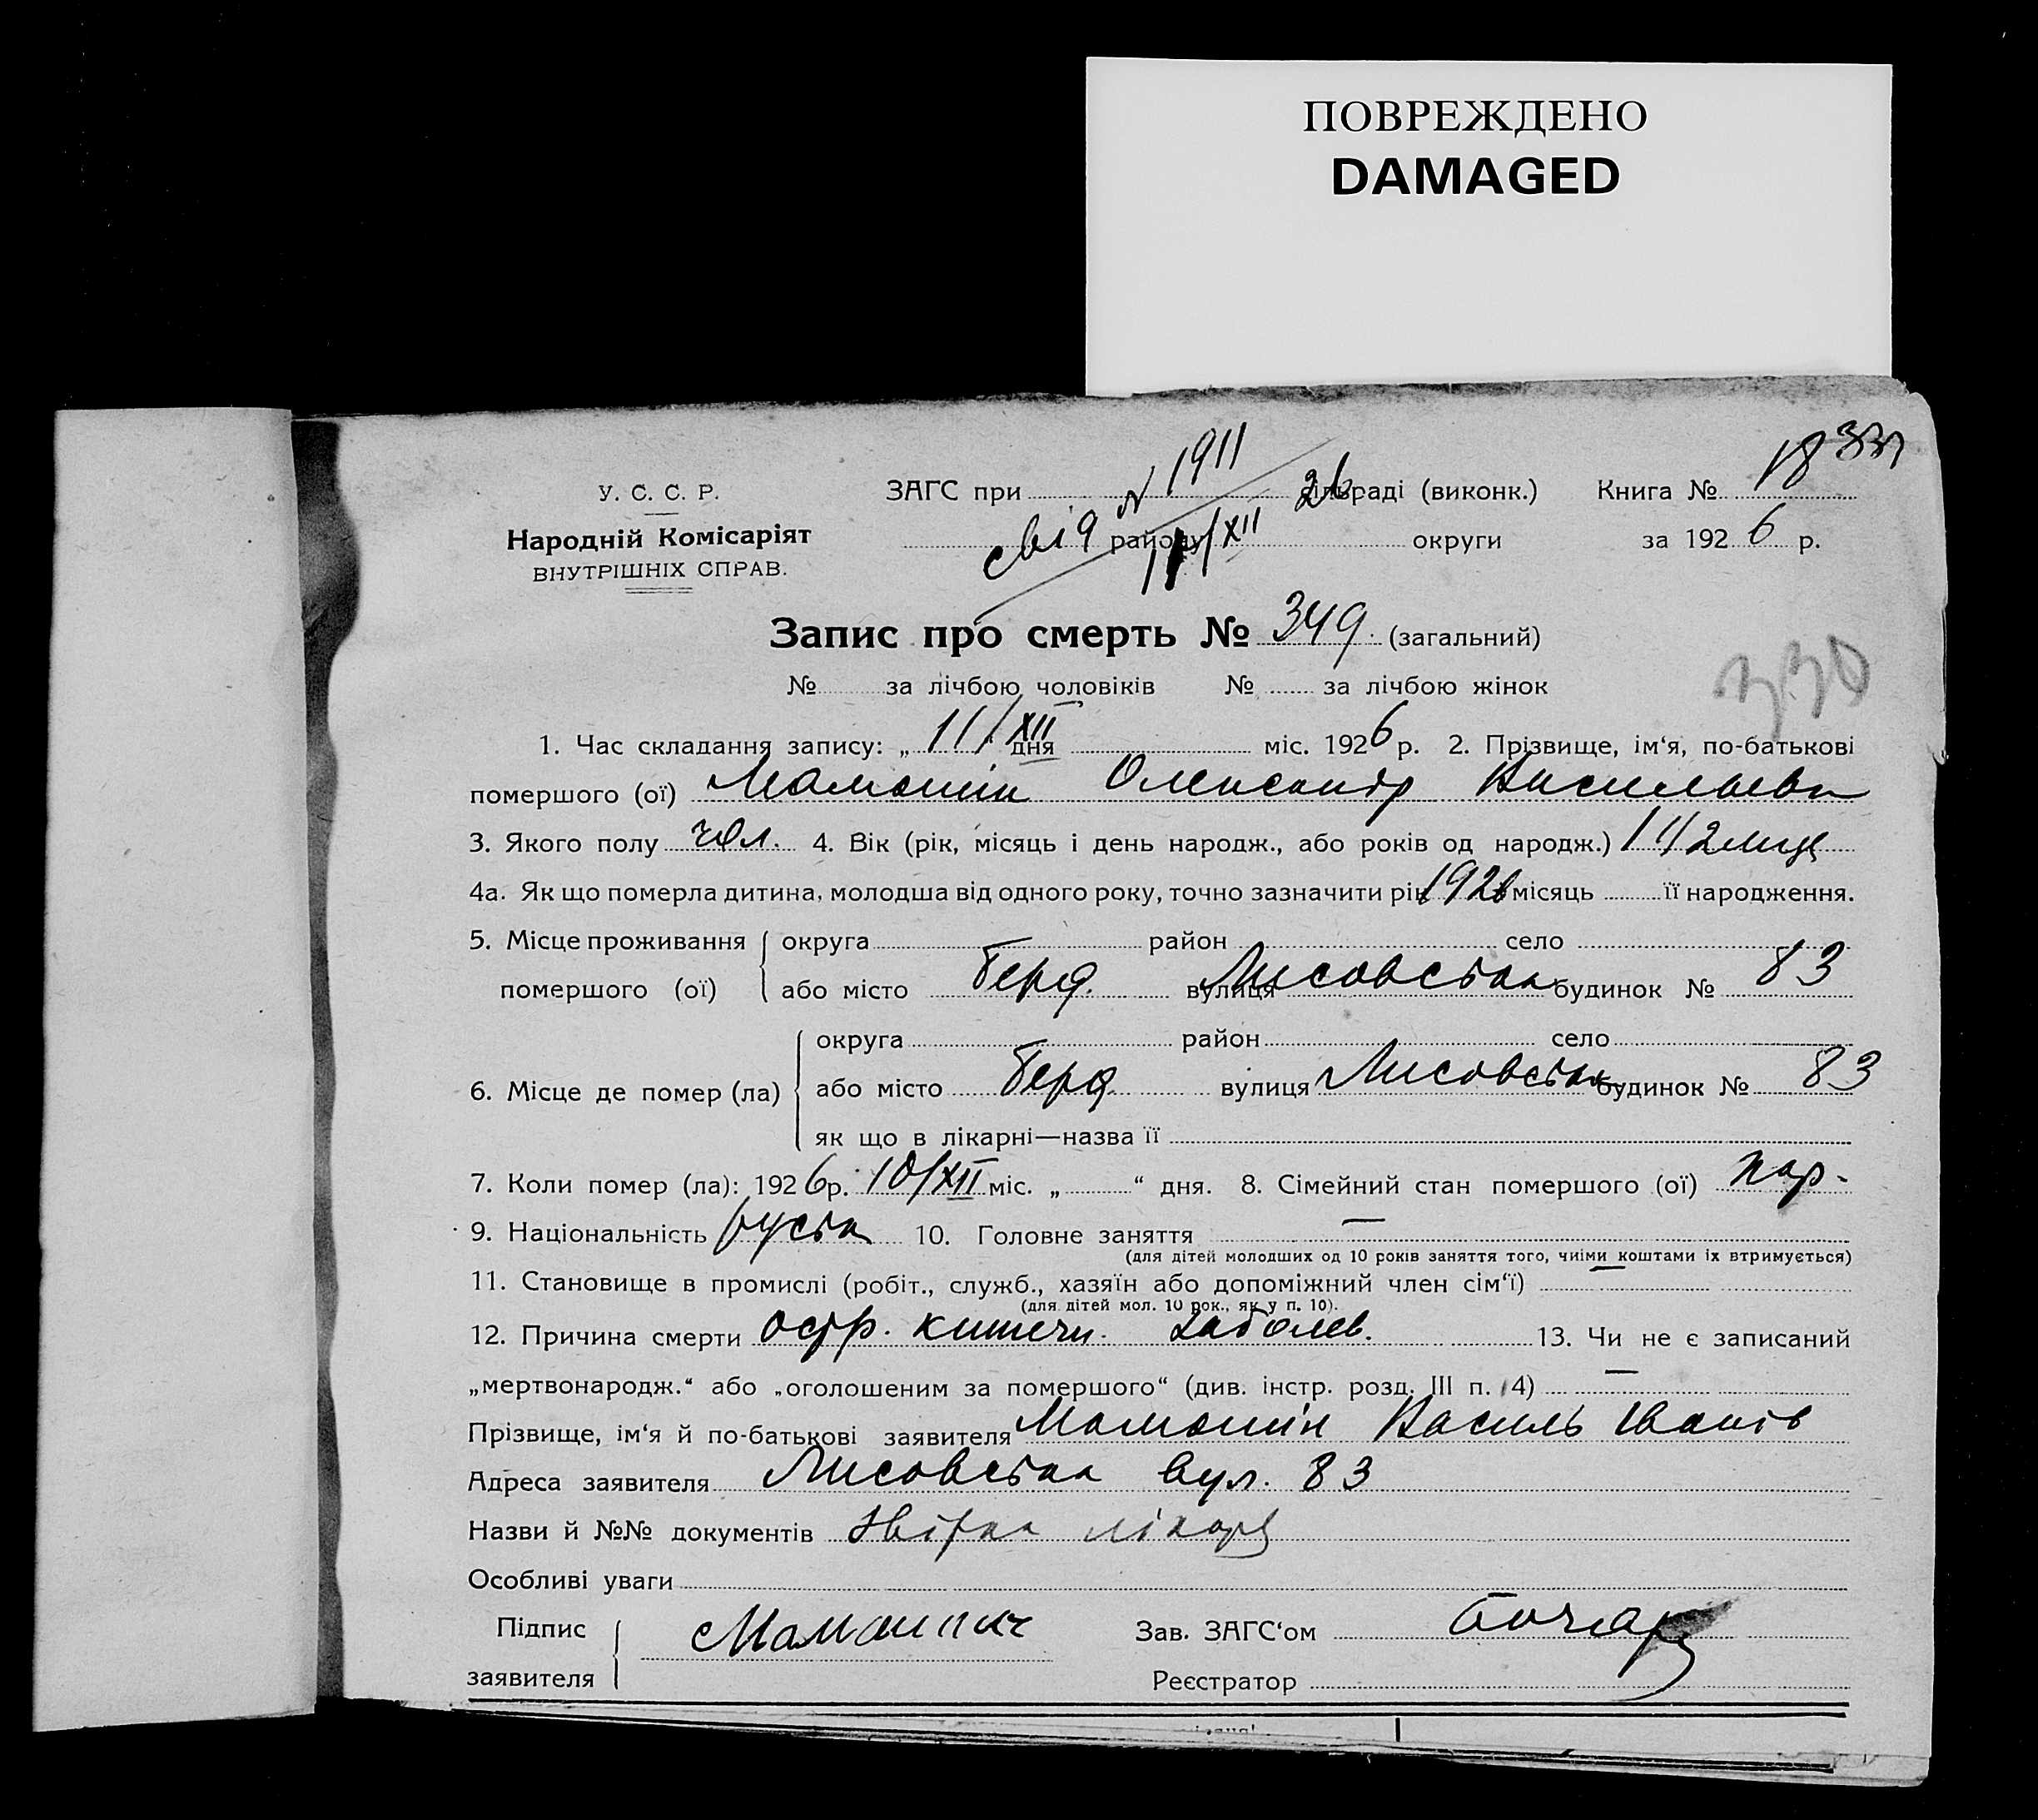 ПОВРЕЖДЕНО
DAMAGED
У. С. С. Р.
Народній Комісаріят
ВНУТРІШНІХ СПРАВ.
ЗАГС при сільраді (виконк.)
району округи
№ 1911
11/XII 26
Книга № 18
за 1926 р.
331
Запис про смерть № 349. (загальний)
№ за лічбою чоловіків № за лічбою жінок
330
1. Час складання запису: „ 11/XII дня міс. 1926 р. 2. Прізвище, ім‘я, по-батькові
помершого (ої) Мамошін Олександр
3. Якого полу чол. 4. Вік (рік, місяць і день народж., або років од народж.)
4а. Як що померла дитина, молодша від одного року, точно зазначити рік 1926 місяць її народження.
5. Місце проживання округа район село
помершого (ої) або місто Берд. вулиця Лисовська будинок № 83
округа район село
6. Місце де помер (ла) або місто Берд вулиця Лисовська будинок № 83
як що в лікарні—назва її
7. Коли помер (ла): 1926 р. 10/XII міс. „ “ дня. 8. Сімейний стан помершого (ої) пар-
9. Національність руська 10. Головне заняття —
(для дітей молодших од 10 років заняття того, чиїми коштами їх втримується)
11. Становище в промислі (робіт., служб., хазяїн або допоміжний член сім‘ї) —
(для дітей мол. 10 рок., як у п. 10).
12. Причина смерти остр. кишечн. заболев. 13. Чи не є записаний
„мертвонародж.“ або „оголошеним за помершого“ (див. інстр. розд. III п. 4) —
Прізвище, ім‘я й по-батькові заявителя Мамошін Василь Іванів
Адреса заявителя Лисовська вул. 83
Назви й №№ документів лікаря
Особливі уваги
Підпис
заявителя
Зав. ЗАГС‘ом Бочар
Реєстратор